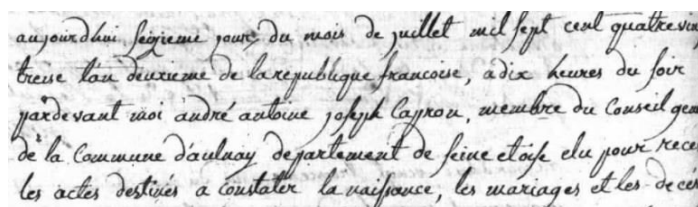 aujourdhui seizieme jour du mois de juillet mil sept cent quatre vin
treise l'an deuxieme de la republique francoise, a dix heures du soir
pardevant moi andré antoine joseph Capron, membre du Conseil gen
de la Commune d'aulnay departement de seine et oise elu pour rece
les actes destinés a constater la naissance, les mariages et les décés